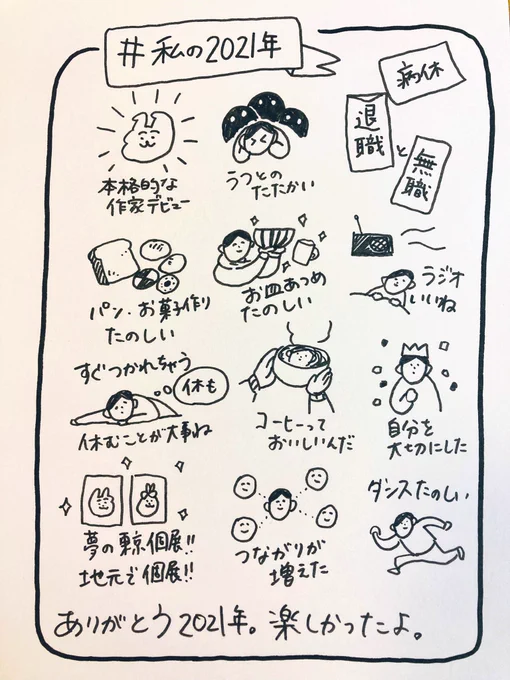 #私の2021年
本格的な
作家デビュー
うつとの
たたかい
病休
退職
と
無職
パン・お菓子作り
たのしい
お皿あつめ
たのしい
ラジオ
いいね
すぐつかれちゃう
休も
休むことが大事ね
コーヒーって
おいしいんだ
自分を
大切にした
夢の東京個展!!
地元で個展!!
つながりが
増えた
ダンスたのしい
ありがとう2021年。楽しかったよ。